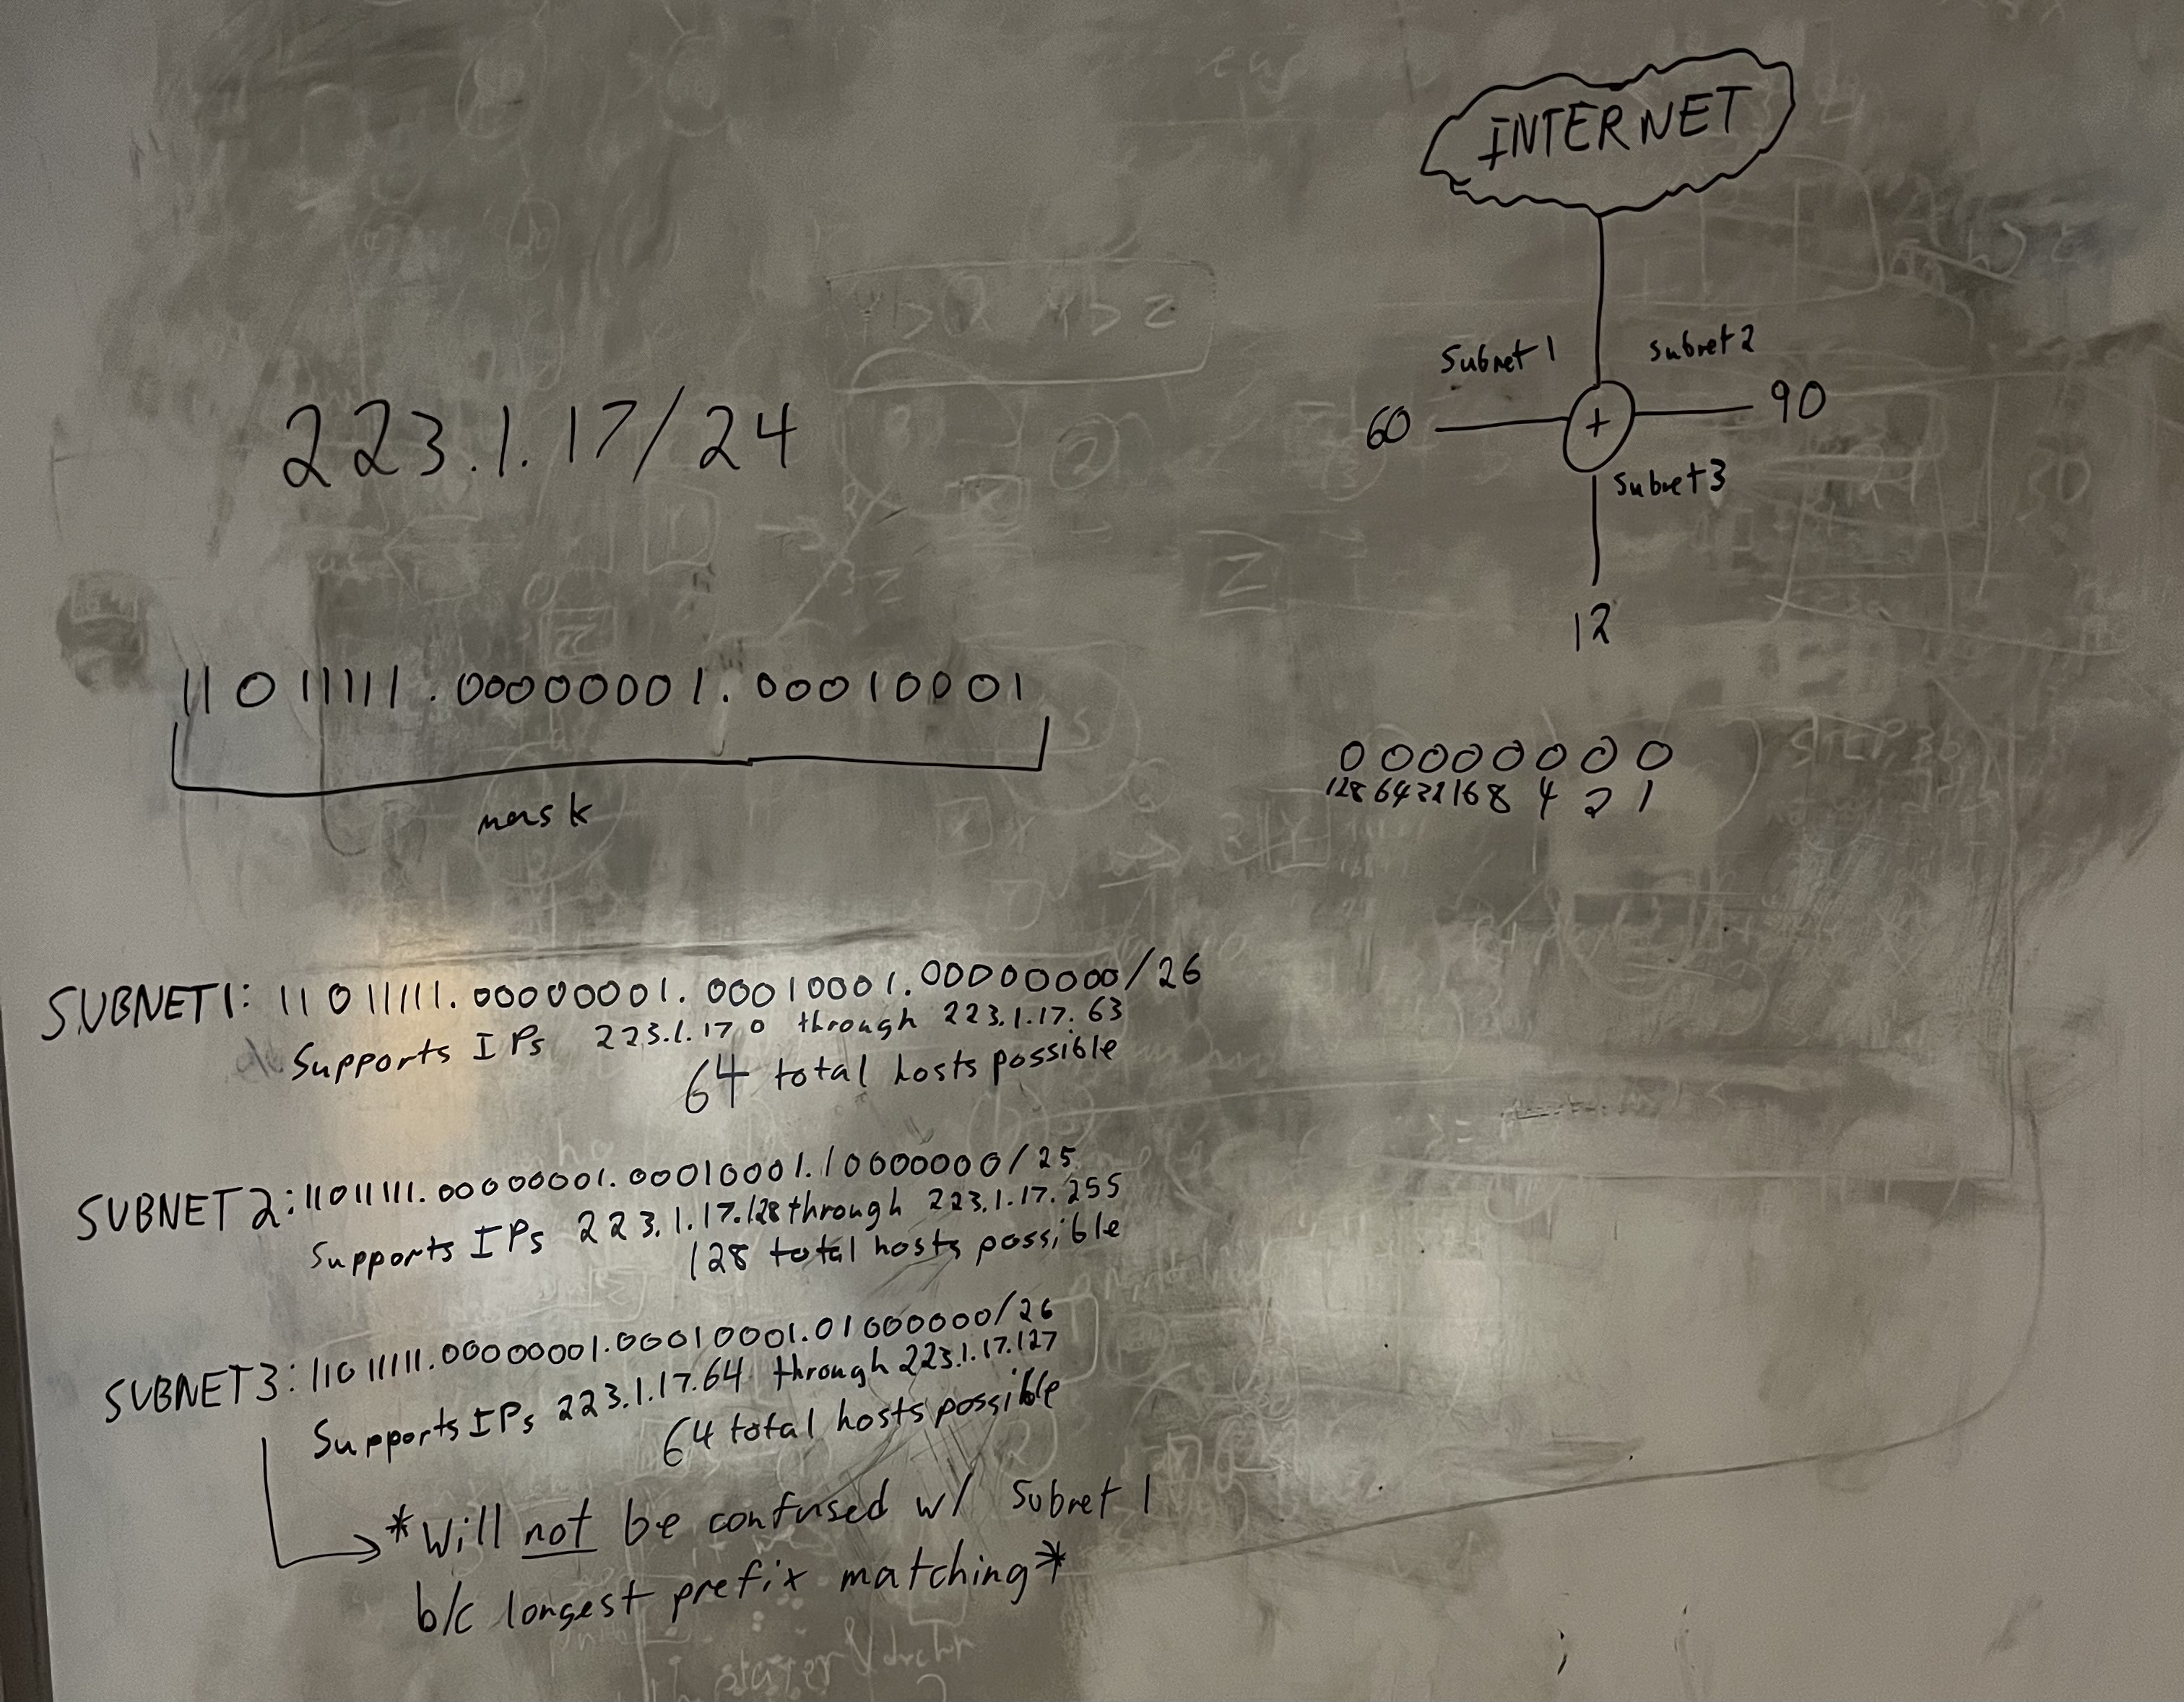 INTERNET
Subnet 1
Subnet 2
60
+
90
Subnet 3
12
223.1.17/24
11011111.00000001.00010001
mask
00000000
128 64 32 16 8 4 2 1
SUBNET1: 11011111.00000001.00010001.00000000/26
Supports IPs 223.1.17 0 through 223.1.17.63
64 total hosts possible
SUBNET2: 11011111.00000001.00010001.10000000/25
Supports IPs 223.1.17.128 through 223.1.17.255
128 total hosts possible
SUBNET3: 11011111.00000001.00010001.01000000/26
Supports IPs 223.1.17.64 through 223.1.17.127
64 total hosts possible
*Will not be confused w/ Subnet 1
b/c longest prefix matching*